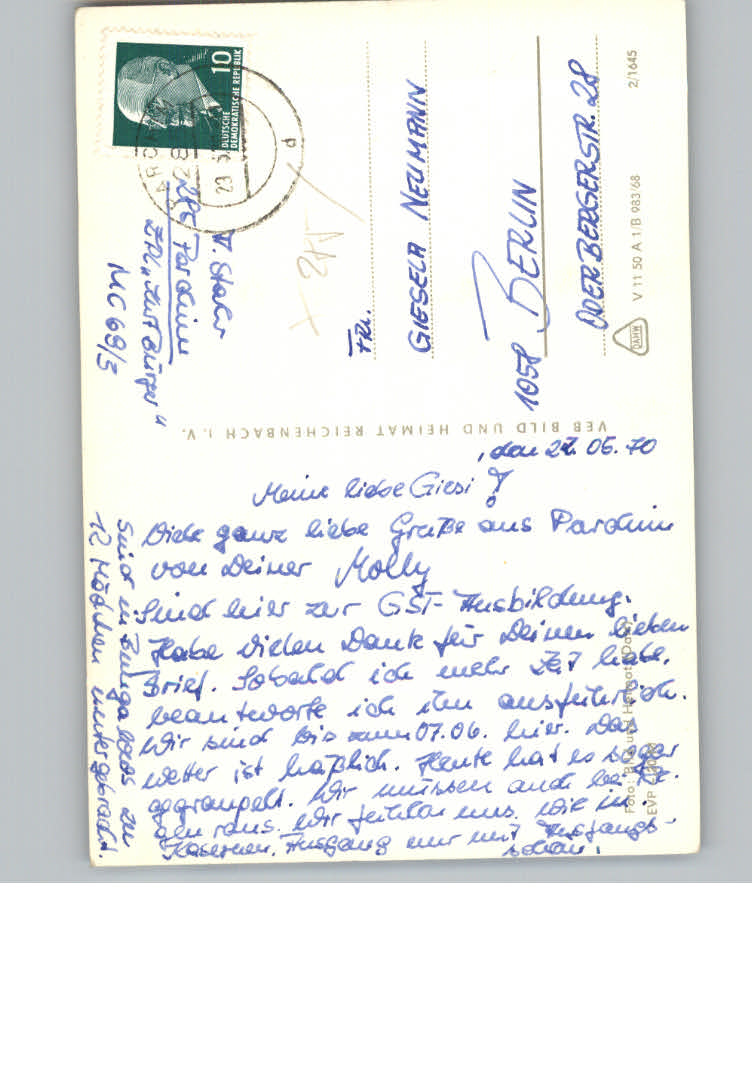 10
DEUTSCHE
DEMOKRATISCHE REPUBLIK
28
d
ZPG Parchim
ZPL "Zurf Bürger"
MC 69/3
Frl.
GIESELA NEUMANN
1058 BERLIN
ODERBERGERSTR. 28
2/1645
V 11 50 A 1/B 983/68
DAHW
VEB BILD UND HEIMAT REICHENBACH I. V.
, den 27. 05. 70
Meine liebe Giesi!
Viele ganz liebe Grüße aus Parchim
von Deiner Molly
Sind hier zur GST-Ausbildung.
Habe vielen Dank für Deinen lieben
Brief. Sobald ich mehr Zeit habe,
beantworte ich ihn ausführlich.
Wir sind bis zum 07.06. hier. Das
Wetter ist häßlich. Heute hat es sogar
gegraupelt. Wir müssen auch bei Re-
gen raus. Wir fühlen uns wie in
Kasernen. Ausgang nur mit Ausgangs-
schein.
Sind in Bungalows zu
12 Mädchen untergebracht.
Foto:
EVP